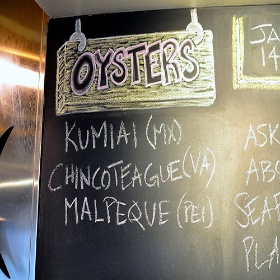 OYSTERS
KUMIAI (MX)
CHINCOTEAGUE (VA)
MALPEQUE (PEI)
JA
14
ASK
ABO
SEAF
PLA